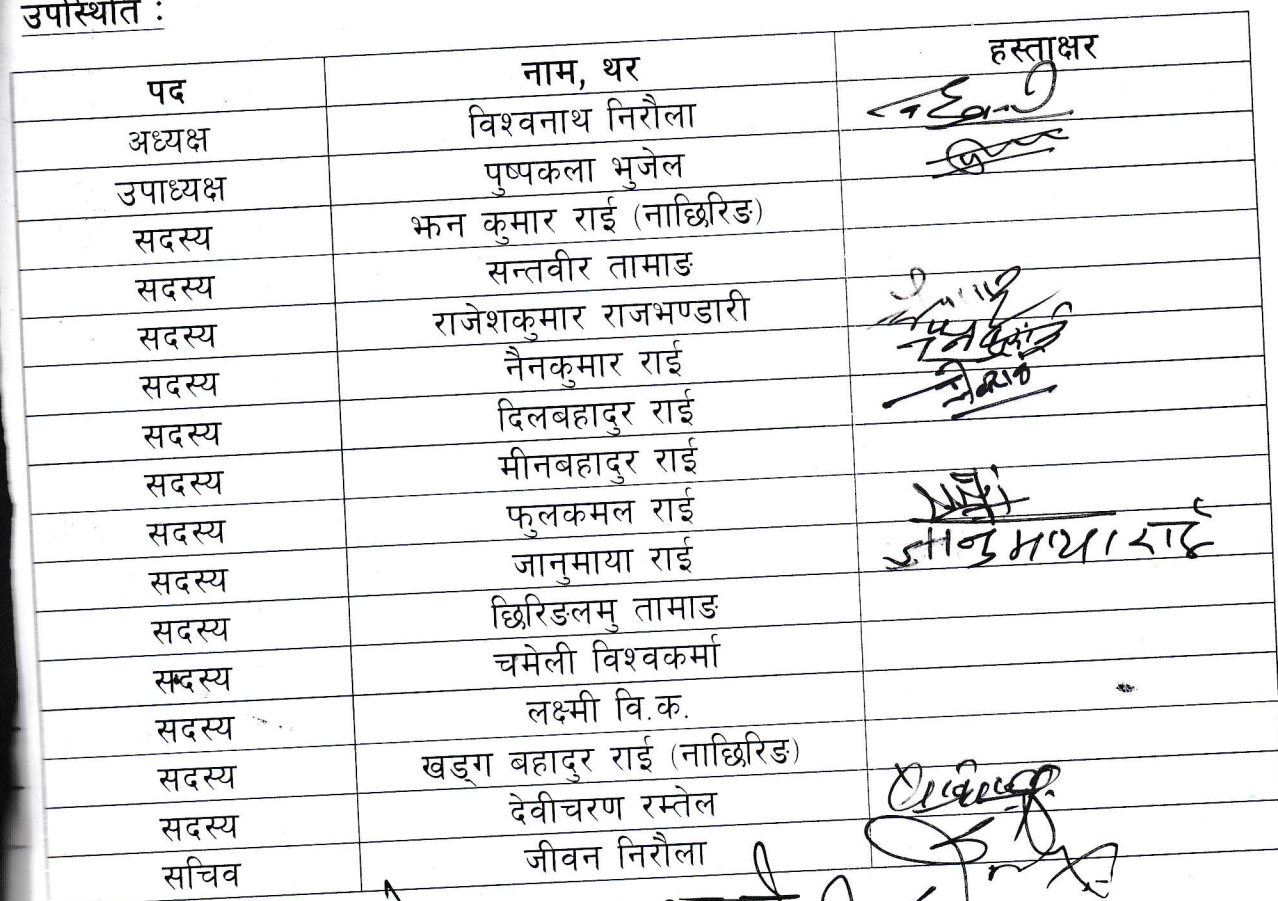 उपस्थिति :
पद नाम, थर हस्ताक्षर
अध्यक्ष विश्वनाथ निरौला
उपाध्यक्ष पुष्पकला भुजेल
सदस्य झन कुमार राई (नाछिरिङ)
सदस्य सन्तवीर तामाङ
सदस्य राजेशकुमार राजभण्डारी
सदस्य नैनकुमार राई
सदस्य दिलबहादुर राई
सदस्य मीनबहादुर राई
सदस्य फुलकमल राई
सदस्य जानुमाया राई जानुमाया राई
सदस्य छिरिङलमु तामाङ
सदस्य चमेली विश्वकर्मा
सदस्य लक्ष्मी वि.क.
सदस्य खड्ग बहादुर राई (नाछिरिङ)
सदस्य देवीचरण रम्तेल
सचिव जीवन निरौला